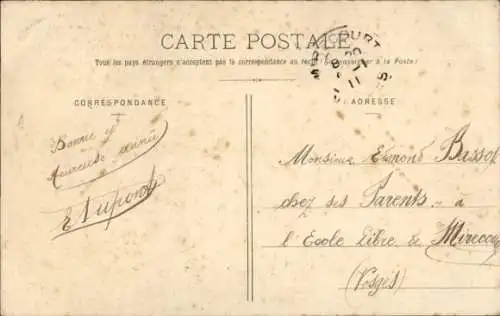 CARTE POSTALE
Tous les pays étrangers n'acceptent pas la correspondance au recto (se renseigner à la Poste)
CORRESPONDANCE
ADRESSE
Bonne et
heureuse année
E Dupont
Monsieur Edmond Bassot
chez ses Parents - à
l'École Libre de Mirecourt
(Vosges)